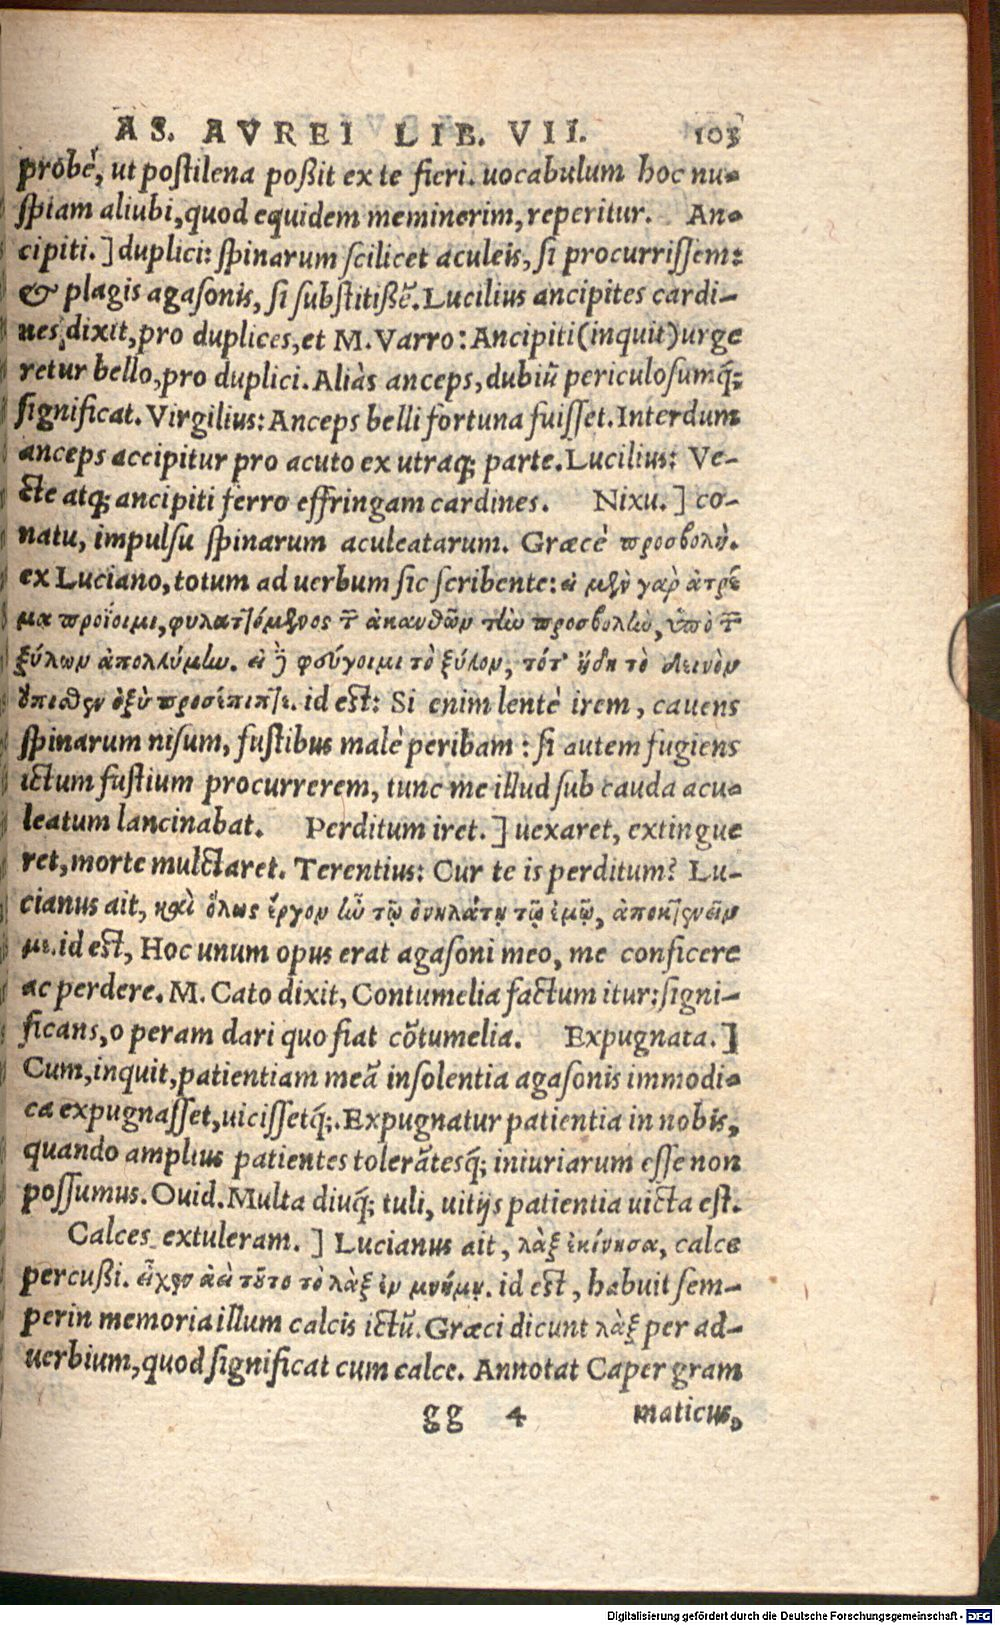 AS. AVREI LIB. VII. 103
probè, ut postilena poßit ex te fieri. uocabulum hoc nu-
spiam aliubi, quod equidem meminerim, reperitur. An-
cipiti.] duplici: spinarum scilicet aculeis, si procurrissem:
& plagis agasonis, si substitißē. Lucilius ancipites cardi-
nes dixit, pro duplices, et M. Varro: Ancipiti (inquit) urge
retur bello, pro duplici. Aliàs anceps, dubiū periculosumq́;
significat. Virgilius: Anceps belli fortuna fuisset. Interdum
anceps accipitur pro acuto ex utraq; parte. Lucilius: Ve-
cte atq; ancipiti ferro effringam cardines. Nixu.] co-
natu, impulsu spinarum aculeatarum. Græcè προσβολή.
ex Luciano, totum ad uerbum sic scribente: εἰ μὲν γὰρ ἀτρέ
μα προΐοιμι, φυλαττόμενος τ̄ ἀκανθῶν τὴν προσβολὴν, ὑπὸ τ̄
ξύλων ἀπολλύμην. εἰ ȷ̓ φεύγοιμι τὸ ξύλον, τότ' ἤδη τὸ δεινὸν
ὄπισθεν ὀξὺ προσέπιπτε. id est: Si enim lentè irem, cauens
spinarum nisum, fustibus malè peribam: si autem fugiens
ictum fustium procurrerem, tunc me illud sub cauda acu-
leatum lancinabat. Perditum iret.] uexaret, extingue
ret, morte mulctaret. Terentius: Cur te is perditum? Lu-
cianus ait, καὶ ὅλως ἔργον ἦν τῷ ὀνηλάτῃ τῷ ἐμῷ, ἀποκτενεῖν
με. id est, Hoc unum opus erat agasoni meo, me conficere
ac perdere. M. Cato dixit, Contumelia factum itur: signi-
ficans, operam dari quo fiat cōtumelia. Expugnata.]
Cum, inquit, patientiam meā insolentia agasonis immodi-
ca expugnasset, uicissetq́;. Expugnatur patientia in nobis,
quando amplius patientes tolerātesq́; iniuriarum esse non
possumus. Ouid. Multa diuq́; tuli, uitijs patientia uicta est.
Calces extuleram.] Lucianus ait, λὰξ ἐκίνησα, calce
percußi. εἶχεν ἀεὶ τοῦτο τὸ λὰξ ἐν μνήμῃ. id est, habuit sem-
per in memoria illum calcis ictū. Græci dicunt λὰξ per ad-
uerbium, quod significat cum calce. Annotat Caper gram
gg 4 maticus,
Digitalisierung gefördert durch die Deutsche Forschungsgemeinschaft - DFG